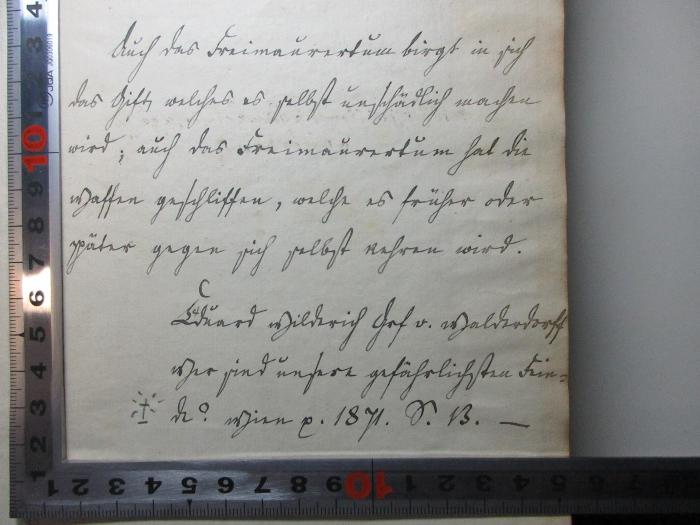 Auch das Freimaurertum birgt in sich
das Gift, welches es selbst unschädlich machen
wird; auch das Freimaurertum hat die
Waffen geschliffen, welche es früher oder
später gegen sich selbst kehren wird.
Eduard Wilderich Grf v. Walderdorff
Wer sind unsere gefährlichsten Fein=
de? Wien p. 1871. S. 13. —